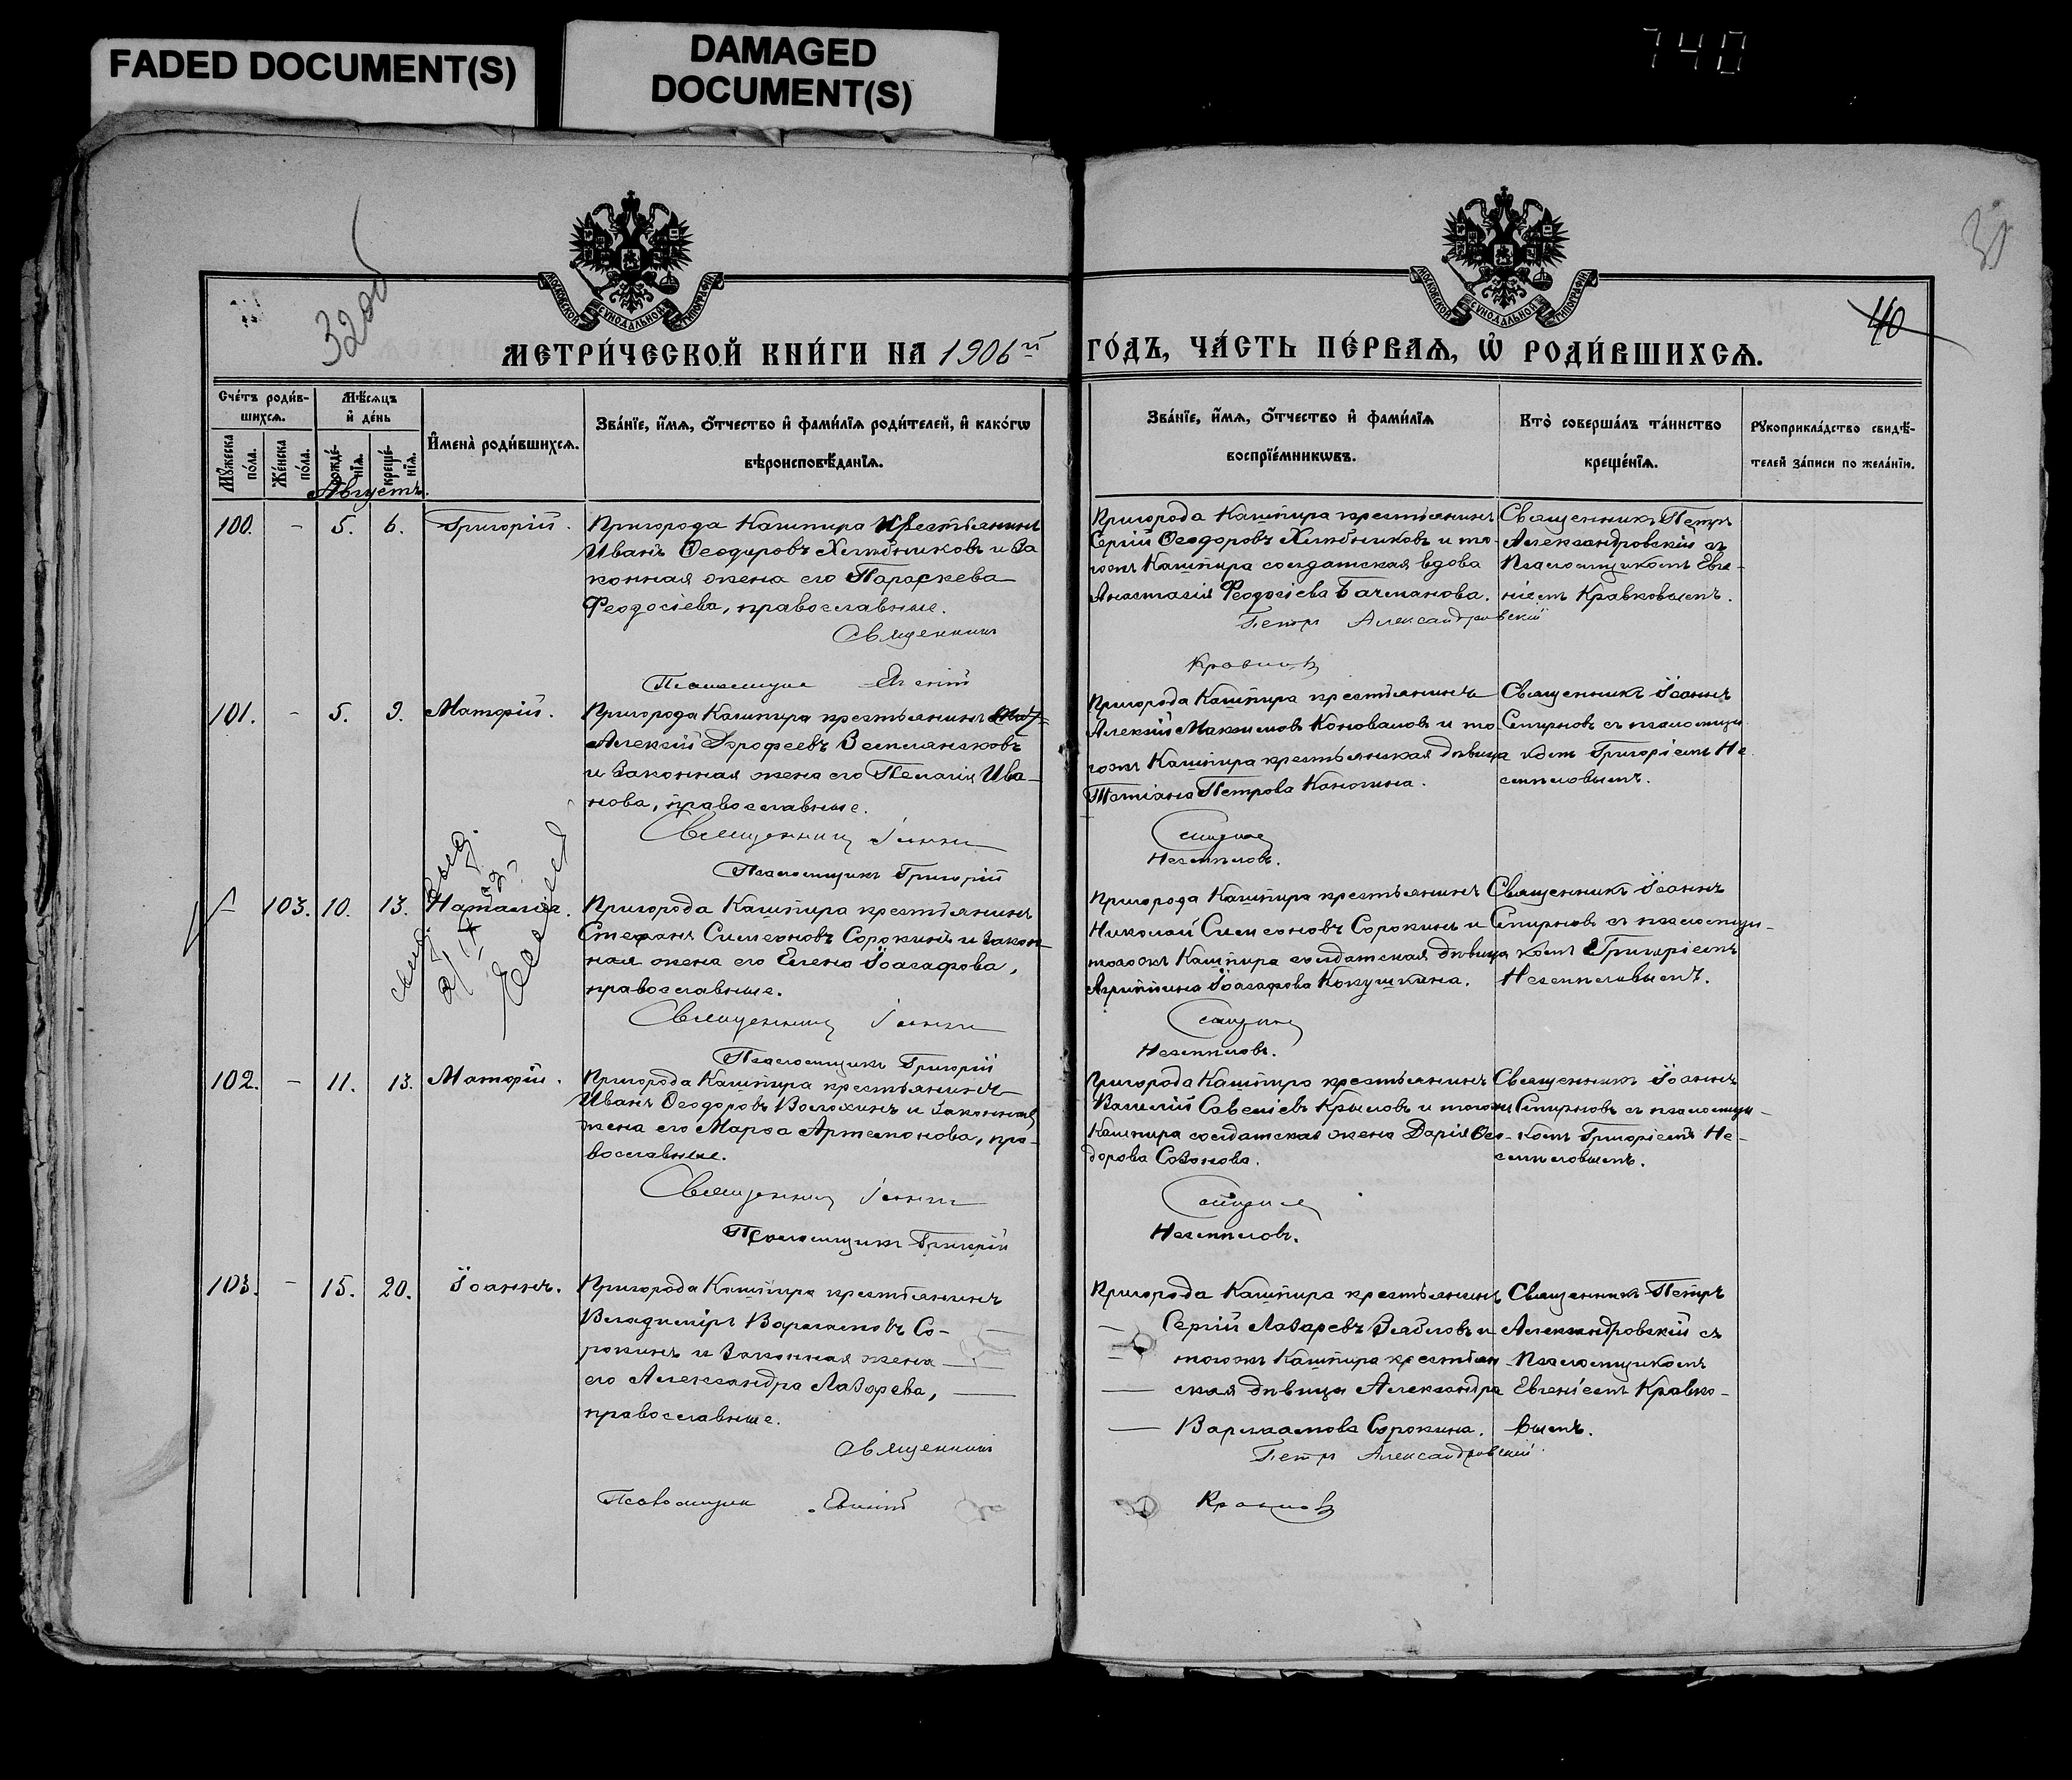 FADED DOCUMENT(S)
DAMAGED
DOCUMENT(S)
740
3200
40
МОСКОВСКОЙ СѴНОДАЛЬНОЙ ТИПОГРАФІИ
МОСКОВСКОЙ СѴНОДАЛЬНОЙ ТИПОГРАФІИ
МЕТРИ́ЧЕСКОЙ КНИ́ГИ НА 1906й ГО́ДЪ, ЧА́СТЬ ПЕ́РВАѦ, Ѽ РОДИ́ВШИХСѦ.
Сче́тъ роди́в-
шихсѧ.
Мꙋжеска по́ла.
Же́нска по́ла.
Мѣ́сяцъ
и҆ де́нь
рожде́-нїѧ.
креще́-нїѧ.
И҆мена̀ роди́вшихсѧ.
Зва́нїе, и҆́мѧ, ѻ҆́тчество и҆ фами́лїѧ роди́телей, и҆ како́гѡ
вѣроисповѣ́данїѧ.
Зва́нїе, и҆́мѧ, ѻ҆́тчество и҆ фами́лїѧ
воспрїе́мникѡвъ.
Кто̀ соверша́лъ та́инство
креще́нїѧ.
Рꙋкоприкла́дство свидѣ́-
телей за́писи по жела́нїю.
Августъ.
100. - 5. 6. Григорій.
Пригорода Кашпира крестьянинъ
Иванъ Ѳеодоровъ Хлѣбниковъ и за
конная жена его Параскева
Феодосіева, православные.
Священникъ
Псаломщикъ Евгеній
Пригорода Кашпира крестьянинъ
Сергій Ѳеодоровъ Хлѣбниковъ и то-
гожъ Кашпира солдатская вдова
Анастасія Феодосіева Бачманова.
Петръ Александровскій
Кравковъ
Священникъ Петръ
Александровскій съ
Псаломщикомъ Евге-
ніемъ Кравковымъ.
101. - 5. 9. Матфій.
Пригорода Кашпира крестьянинъ
Алексій Дорофеевъ Земляносковъ
и законная жена его Пелагія Ива-
нова, православные.
Священникъ Іоаннъ
Псаломщикъ Григорій
Пригорода Кашпира крестьянинъ
Алексій Максимовъ Коноваловъ и то-
гожъ Кашпира крестьянская дѣвица
Татіана Петрова Канюкина.
Смирновъ
Незамловъ.
Священникъ Іоаннъ
Смирновъ съ псаломщи-
комъ Григоріемъ Не
- 103. 10. 13. Наталія.
Пригорода Кашпира крестьянинъ
Стефанъ Симеоновъ Сорокинъ и закон-
ная жена его Елена Іоасафова,
православные.
Священникъ Іоаннъ
Псаломщикъ Григорій
Пригорода Кашпира крестьянинъ
Николай Симеоновъ Сорокинъ и
тогожъ Кашпира солдатская дѣвица
Агриппина Іоасафова Кокушкина.
Смирновъ
Священникъ Іоаннъ
Смирновъ съ псаломщи-
комъ Григоріемъ
102. - 11. 13. Матфій.
Пригорода Кашпира крестьянинъ
Иванъ Ѳеодоровъ Волохинъ и законная
жена его Марѳа Артамонова, пра-
вославные.
Священникъ Іоаннъ
Псаломщикъ Григорій
Пригорода Кашпира крестьянинъ
Василій Савеліевъ Крыловъ и тогожъ
Кашпира солдатская жена Дарія Ѳео-
дорова Созонова.
Смирновъ
Священникъ Іоаннъ
Смирновъ съ псаломщи-
комъ Григоріемъ Не-
103. - 15. 20. Іоаннъ.
Пригорода Кашпира крестьянинъ
Владиміръ Варлаамовъ Со-
рокинъ и законная жена
его Александра Лазарева,
православные.
Священникъ
Псаломщикъ Евгеній
Пригорода Кашпира крестьянинъ
Сергій Лазаревъ Зябловъ и
тогожъ Кашпира крестьян
ская дѣвица Александра
Варлаамова Сорокина.
Петръ Александровскій
Кравковъ
Священникъ Петръ
Александровскій съ
Псаломщикомъ
Евгеніемъ Кравко-
вымъ.